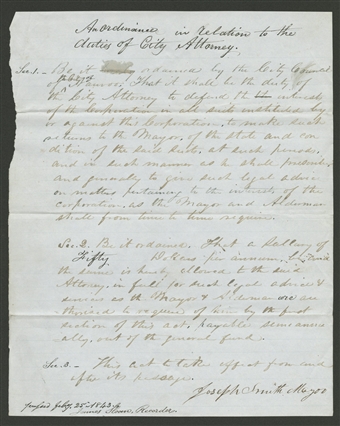 An ordinance in relation to the
duties of City Attorney.
Sec. 1. Be it ordained by the City Council
of the City of Nauvoo, That it shall be the duty of
the City Attorney to defend the interest
of the Corporation in all suits instituted by
or against this Corporation, to make such
returns to the Mayor, of the state and con
dition of the said suits, at such periods,
and in such manner as he shall prescribe,
and generally to give such legal advice
on matters pertaining to the interests of the
corporation, as the Mayor and Aldermen
shall from time to time require.
Sec. 2. Be it ordained, That a Sallery of
Fifty Dollars per annum,
the same is hereby allowed to the said
Attorney, in full for such legal advice &
services as the Mayor & Aldermen are au
thorised to require of him by the first
section of this act, payable semiannu
ally, out of the general fund.
Sec. 3. This act to take effect from and
after its passage.
Joseph Smith Mayor
passed Feby. 25th 1843
James Sloan, Recorder